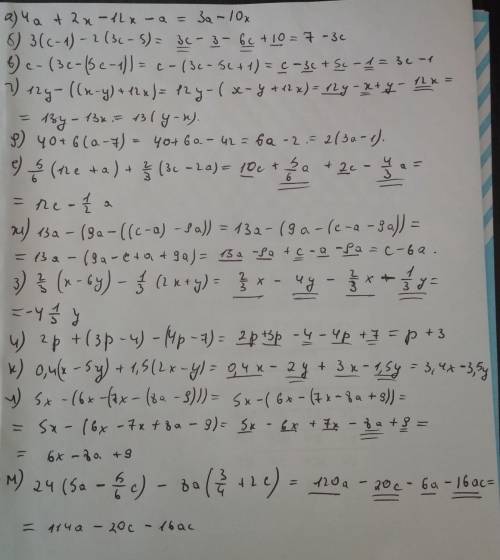 а) 4a + 2x - 12x - a = 3a - 10x
б) 3(c-1) - 2(3c-5) = 3c - 3 - 6c + 10 = 7 - 3c
в) c - (3c - (5c-1)) = c - (3c - 5c + 1) = c - 3c + 5c - 1 = 3c - 1
г) 12y - ((x-y) + 12x) = 12y - (x - y + 12x) = 12y - x + y - 12x =
= 13y - 13x = 13(y-x).
д) 40 + 6(a-7) = 40 + 6a - 42 = 6a - 2 = 2(3a-1).
е) 5/6 (12c + a) + 2/3 (3c - 2a) = 10c + 5/6 a + 2c - 4/3 a =
= 12c - 1/2 a
ж) 13a - (9a - ((c-a) - 9a)) = 13a - (9a - (c - a - 9a)) =
= 13a - (9a - c + a + 9a) = 13a - 9a + c - a - 9a = c - 6a.
з) 2/3 (x - 6y) - 1/3 (2x + y) = 2/3 x - 4y - 2/3 x - 1/3 y =
= -4 1/3 y
и) 2p + (3p-4) - (4p-7) = 2p + 3p - 4 - 4p + 7 = p + 3
к) 0,4(x-5y) + 1,5(2x-y) = 0,4x - 2y + 3x - 1,5y = 3,4x - 3,5y
л) 5x - (6x - (7x - (8a-9))) = 5x - (6x - (7x - 8a + 9)) =
= 5x - (6x - 7x + 8a - 9) = 5x - 6x + 7x - 8a + 9 =
= 6x - 8a + 9
м) 24 (5a - 5/6 c) - 8a (3/4 + 2c) = 120a - 20c - 6a - 16ac =
= 114a - 20c - 16ac